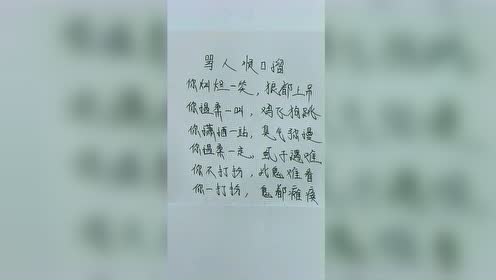 骂人顺口溜
你灿烂一笑，狼都上吊
你温柔一叫，鸡飞狗跳
你潇洒一站，臭气弥漫
你温柔一走，瓜子遇难
你不打扮，比鬼难看
你一打扮，鬼都瘫痪